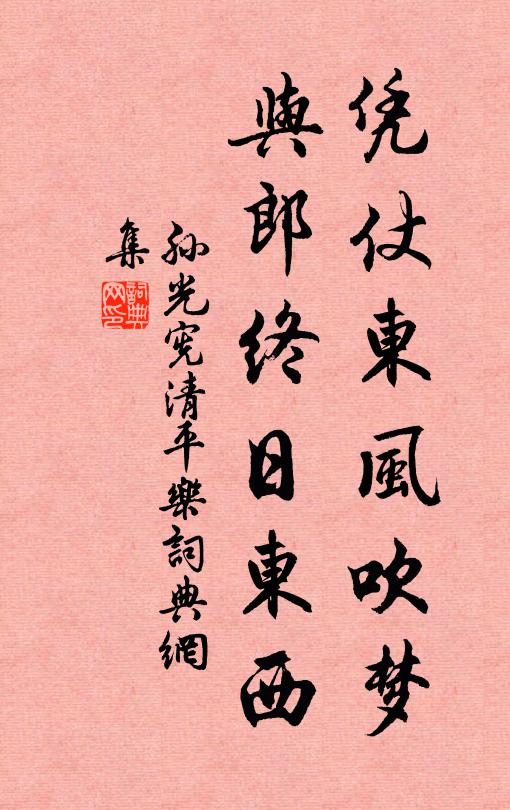 凭仗東風吹梦
與郎終日東西
孙光宪清平樂詞典網
集
詞典网印